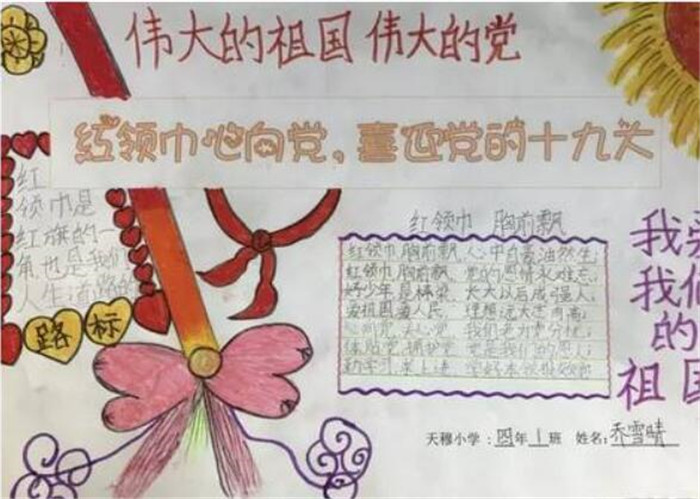 伟大的祖国 伟大的党
红领巾心向党，喜迎党的十九大
红
领巾是
红旗的一
角也是我们
人生道路的
路标
红领巾 胸前飘
红领巾胸前飘，心中自豪油然生；
红领巾胸前飘，党的恩情永难忘；
好少年是栋梁，长大以后成强人；
爱祖国爱人民，理想远大
心向党
体贴党 拥护党 党是我们的恩人；
我爱
我们
的
祖国
天穆小学：四年1班 姓名：乔雪晴